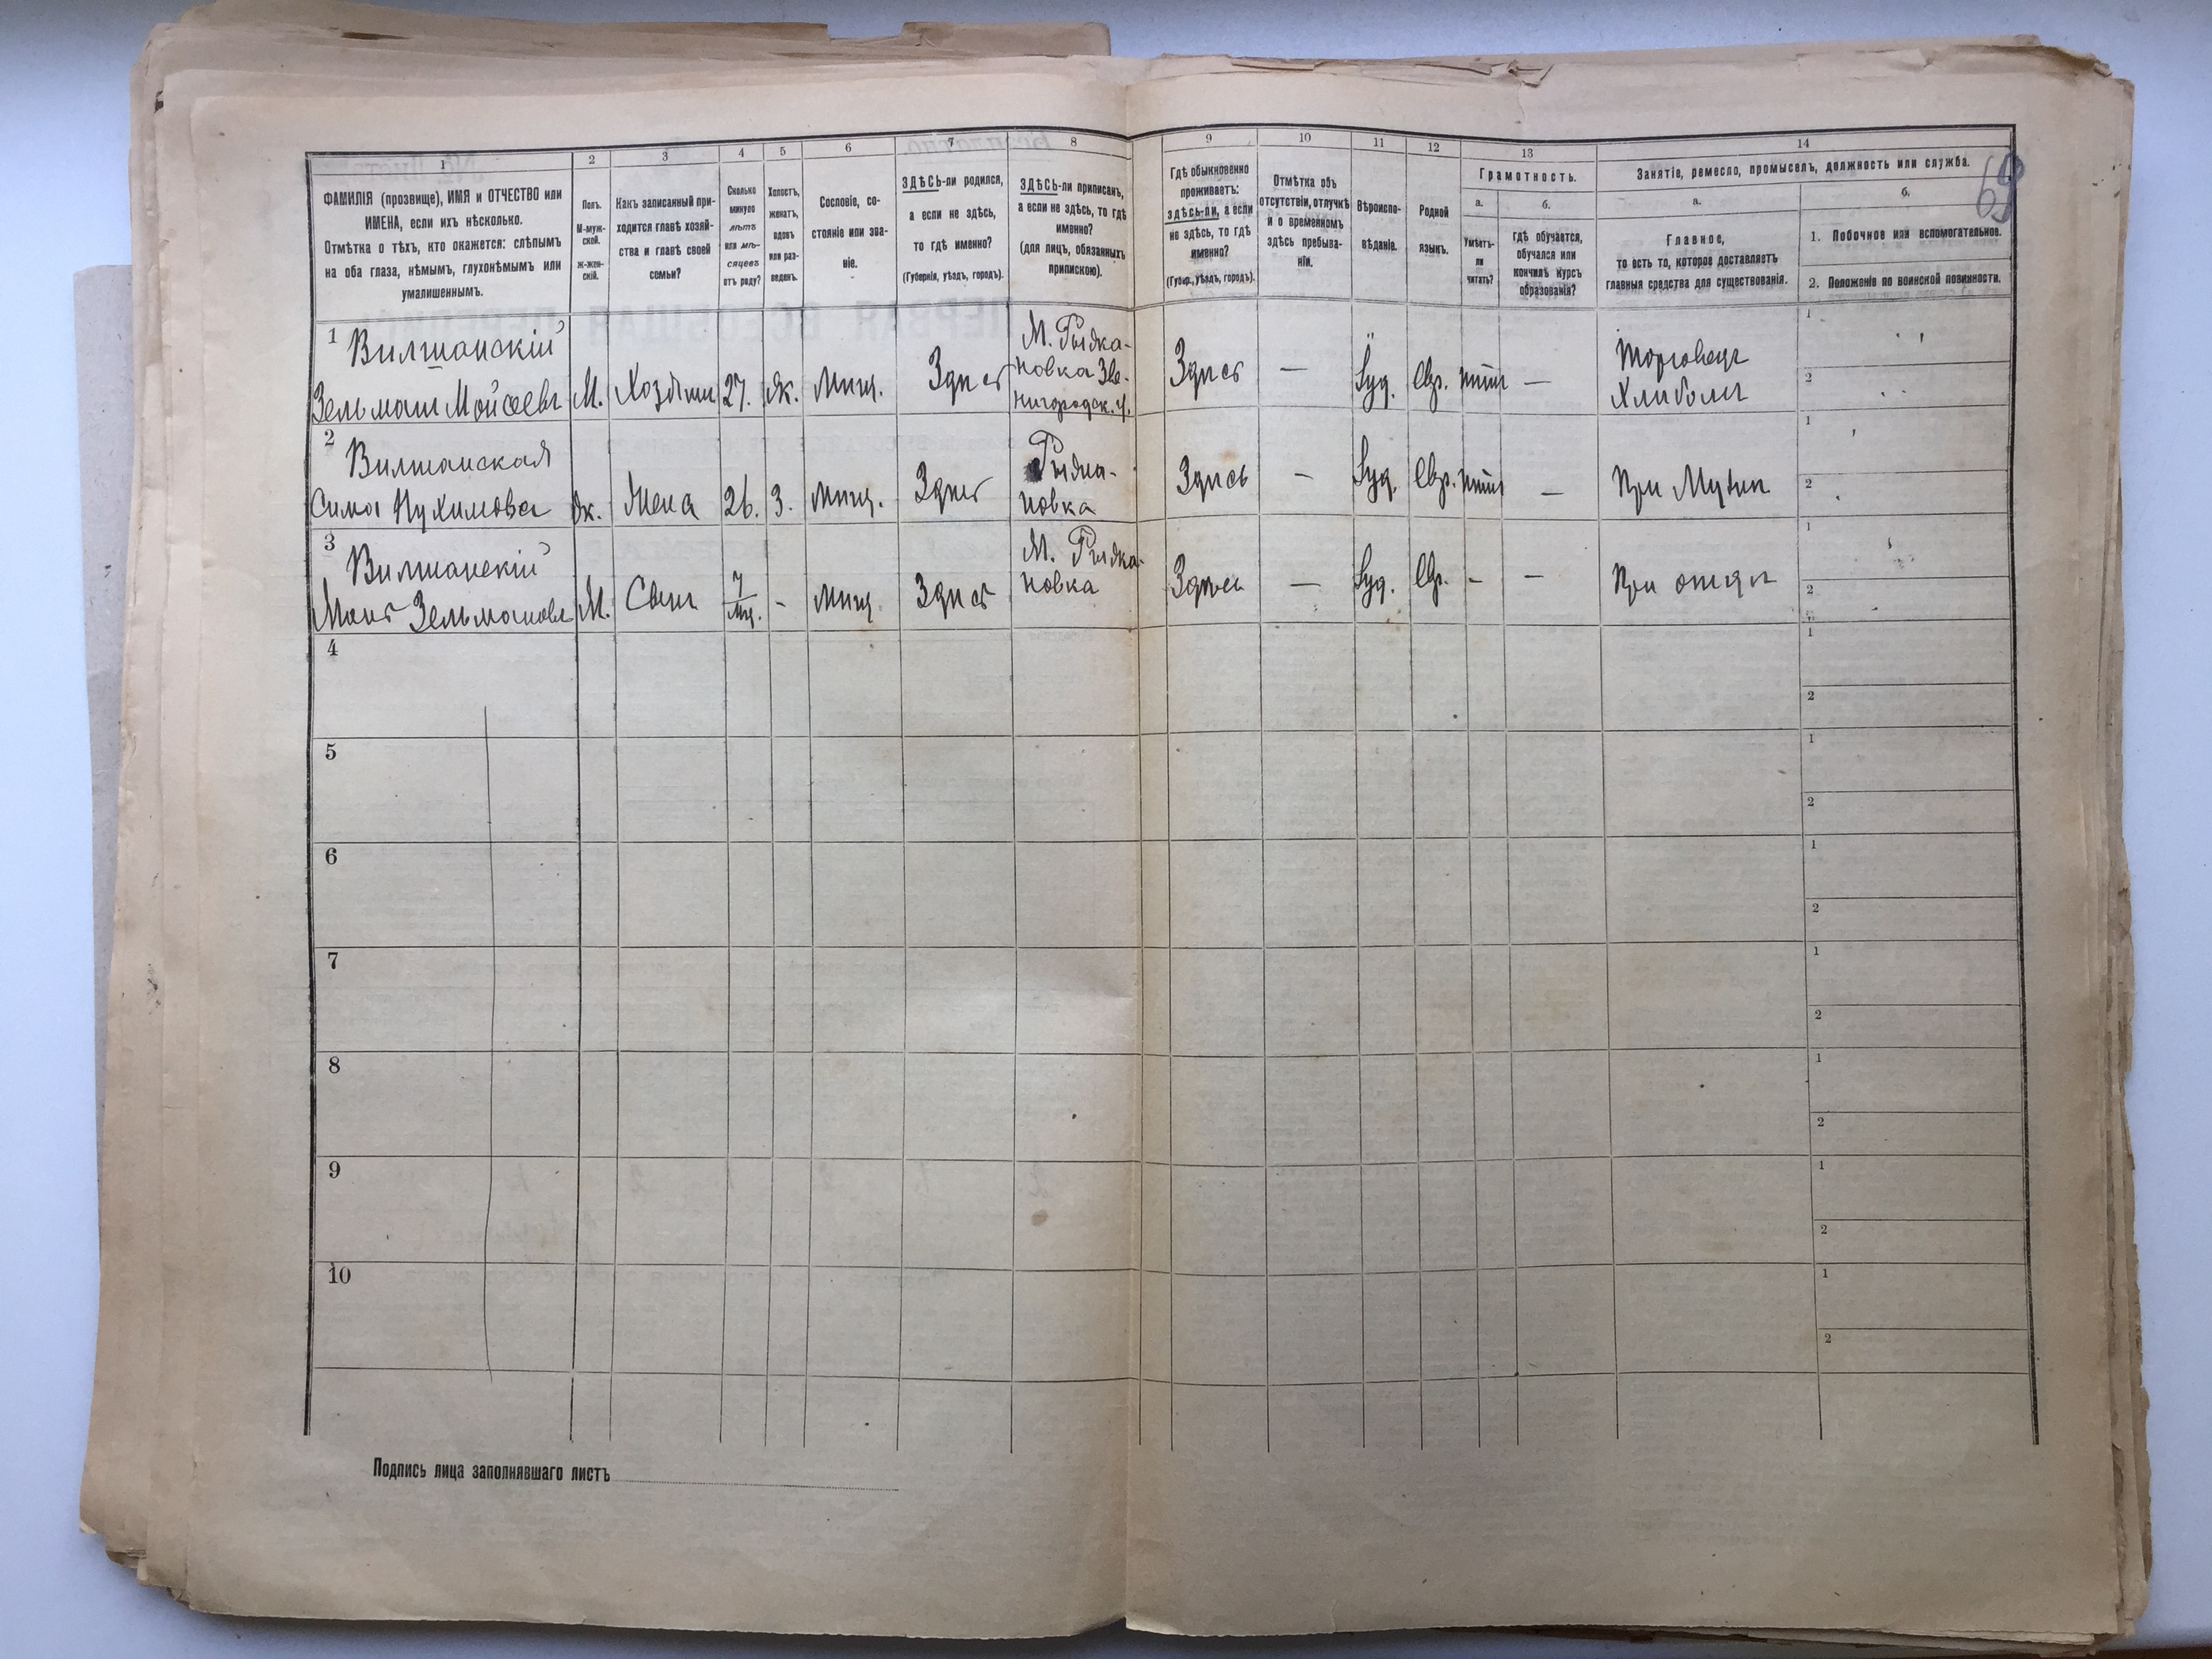 1 2 3 4 5 6 7 8 9 10 11 12 13 14
69
ФАМИЛІЯ (прозвище), ИМЯ и ОТЧЕСТВО или
ИМЕНА, если ихъ нѣсколько.
Отмѣтка о тѣхъ, кто окажется: слѣпымъ
на оба глаза, нѣмымъ, глухонѣмымъ или
умалишеннымъ.
Полъ.
М-муж-
ской.
ж-жен-
скій.
Какъ записанный при-
ходится главѣ хозяй-
ства и главѣ своей
семьи?
Сколько
минуло
лѣтъ
или мѣ-
сяцевъ
отъ роду?
Холостъ,
женатъ,
вдовъ
или раз-
веденъ.
Сословіе, со-
стояніе или зва-
ніе.
ЗДѢСЬ-ли родился,
а если не здѣсь,
то гдѣ именно?
(Губернія, уѣздъ, городъ).
ЗДѢСЬ-ли приписанъ,
а если не здѣсь, то гдѣ
именно?
(для лицъ, обязанныхъ
припискою).
Гдѣ обыкновенно
проживаетъ:
здѣсь-ли, а если
не здѣсь, то гдѣ
именно?
(Губер., уѣздъ, городъ).
Отмѣтка объ
отсутствіи, отлучкѣ
и о временномъ
здѣсь пребыва-
ніи.
Вѣроиспо-
вѣданіе.
Родной
языкъ.
Грамотность.
а.
Умѣетъ-
ли
читать?
б.
Гдѣ обучается,
обучался или
кончилъ курсъ
образованія?
Занятіе, ремесло, промыселъ, должность или служба.
а.
Главное,
то есть то, которое доставляетъ
главныя средства для существованія.
б.
1. Побочное или вспомогательное.
2. Положеніе по воинской повинности.
1 Вилшанскій
Зельман Мойсеевъ М. Хозяин 27. ж. Мѣщ. Здѣсь
М. Рыжа-
новка Зве-
нигородск. у.
Здѣсь — Іуд. Евр. —
Торговец
Хлѣбом
1
2
2 Вилшанская
Сима Нухимова ж. Жена 26. З. мѣщ. Здѣсь
Рыжа-
новка
Здѣсь — Іуд. Евр. — При Мужѣ
1
2
3 Вилшанскій
Зельманов М. Сын 7 мѣс. - мѣщ. Здѣсь
М. Рыжа-
новка
Здѣсь — Іуд. Евр. - — При отцѣ
1
2
4
1
2
5
1
2
6
1
2
7
1
2
8
1
2
9
1
2
10
1
2
Подпись лица заполнявшаго листъ